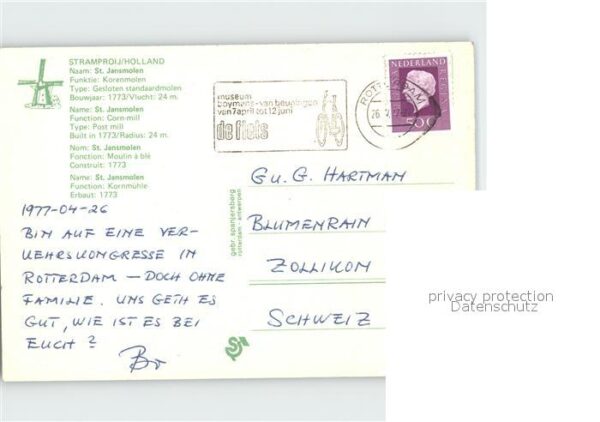 STRAMPROIJ/HOLLAND
Naam: St. Jansmolen
Funktie: Korenmolen
Type: Gesloten standaardmolen
Bouwjaar: 1773/Vlucht: 24 m.
Name: St. Jansmolen
Function: Corn-mill
Type: Post mill
Built in 1773/Radius: 24 m.
Nom: St. Jansmolen
Fonction: Moulin à blé
Construit: 1773
Name: St. Jansmolen
Function: Kornmühle
Erbaut: 1773
museum
boymans-van beuningen
van 7 april tot 12 juni
de fiets
ROTTERDAM
NEDERLAND
50 C
1977-04-26
BIN AUF EINE VER-
KEHRSKONGRESSE IN
ROTTERDAM — DOCH OHNE
FAMILIE. UNS GETH ES
GUT, WIE IST ES BEI
EUCH?
gebr. spanjersberg
rotterdam - antwerpen
G u. G. HARTMAN
BLUMENRAIN
ZOLLIKON
SCHWEIZ
privacy protection
Datenschutz